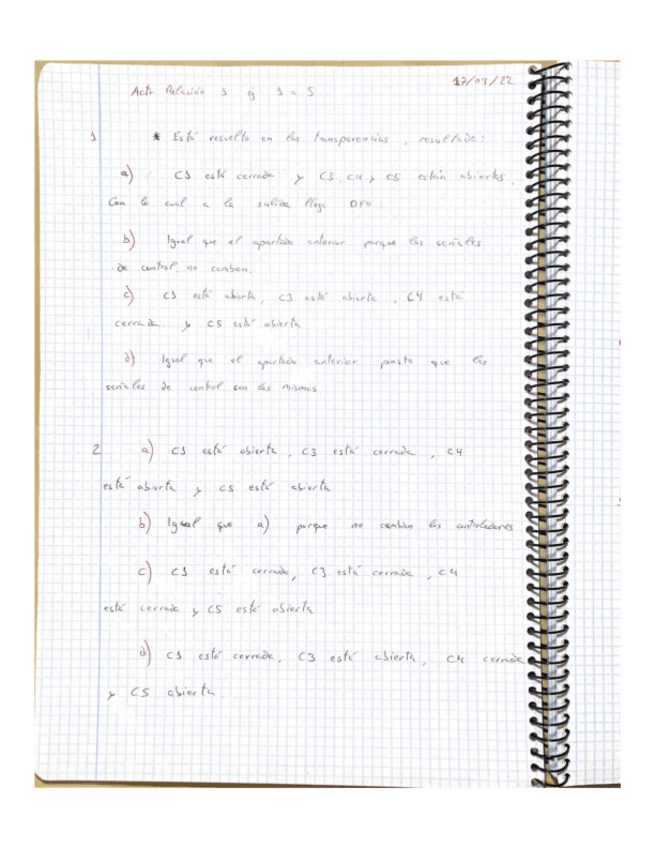 17/01/22
Act. Relación 1 ej 1 a 5
1 * Está resuelto en las transparencias, resultado:
a) C1 está cerrada y C3, C4 y C5 están abiertas.
Con lo cual a la salida llega DF0
b) Igual que el apartado anterior porque las señales
de control no cambian.
c) C1 está abierta, C3 está abierta, C4 está
cerrada y C5 está abierta
d) Igual que el apartado anterior puesto que las
señales de control son las mismas
2 a) C1 está abierta, C3 está cerrada, C4
está abierta y C5 está abierta
b) Igual que a) porque no cambian los controladores
c) C1 está cerrada, C3 está cerrada, C4
está cerrada y C5 está abierta
d) C1 está cerrada, C3 está abierta, C4 cerrada
y C5 abierta